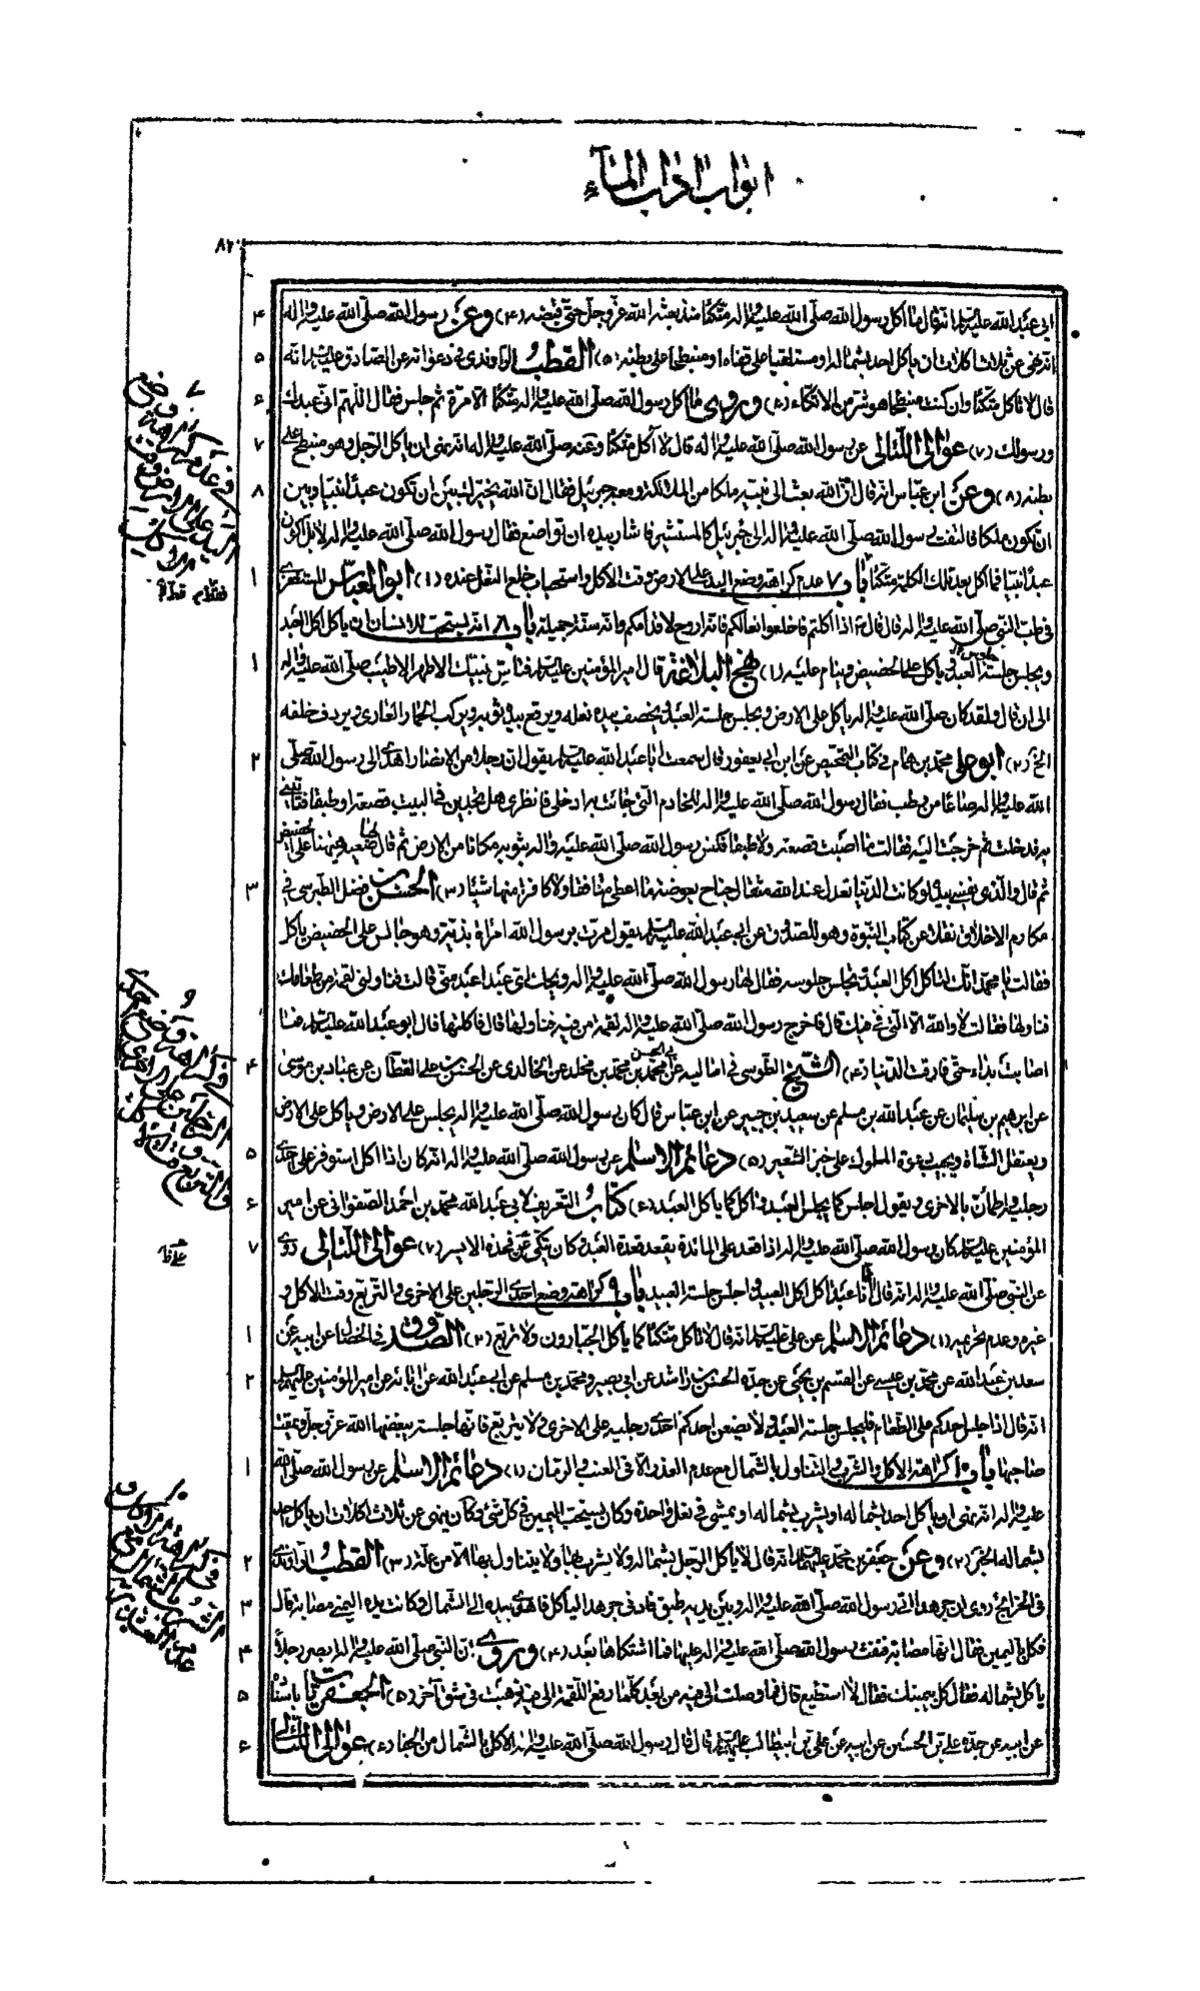 ابواب اداب المائدة
ابي عبد الله عليه السلام انه قال ما اكل رسول الله صلى الله عليه واله متكئا منذ بعثه الله عز وجل حتى قبضه (٣) وعن رسول الله صلى الله عليه واله ٤
انه نهى عن ثلاث اكلات ان ياكل احد بشماله او مستلقيا على قفاه او منبطحا على بطنه (٥) القطب الراوندي في دعواته عن الصادق عليه السلام انه ٥
قال لا تاكل متكئا وان كنت منبطحا هو شر من الاتكاء (٦) وروي ما اكل رسول الله صلى الله عليه واله متكئا الا مرة ثم جلس فقال اللهم اني عبدك ۶
ورسولك (٧) عوالي اللئالي عن رسول الله صلى الله عليه واله قال لا آكل متكئا وعنه صلى الله عليه واله انه نهى ان ياكل الرجل وهو منبطح على ٧
بطنه (٨) وعن ابن عباس انه قال ان الله بعث الى نبيه ملكا من الملائكة ومعه جبرئيل فقال ان الله يخيرك بين ان تكون عبدا نبيا وبين ٨
ان تكون ملكا فالتفت رسول الله صلى الله عليه واله الى جبرئيل كالمستشير فاشار بيده ان تواضع فقال رسول الله صلى الله عليه واله لا بل اكون
عبدا نبيا فما اكل بعد تلك الكلمة متكئا باب ٧ عدم كراهة وضع اليد على الارض وقت الاكل واستحباب خلع النعل عنده (١) ابو العباس المستغفري ١
في طب النبي صلى الله عليه واله قال قال ص اذا اكلتم فاخلعوا نعالكم فانه اروح لاقدامكم وانه سنة جميلة باب ٨ انه يستحب للانسان ان ياكل اكل العبد
ويجلس جلسة العبد وياكل على الحضيض وينام عليه (١) نهج البلاغة قال امير المؤمنين عليه السلام فتاس بنبيك الاطهر الاطيب صلى الله عليه واله ١
الى ان قال ولقد كان صلى الله عليه واله ياكل على الارض ويجلس جلسة العبد ويخصف بيده نعله ويرقع بيده ثوبه ويركب الحمار العاري ويردف خلفه
الخ (٢) ابو علي محمد بن همام في كتاب التمحيص عن ابن ابي يعفور قال سمعت ابا عبد الله عليه السلام يقول ان رجلا من الانصار اهدى الى رسول الله صلى ٢
الله عليه واله صاعا من رطب فقال رسول الله صلى الله عليه واله للخادم التي جائت به ادخلي فانظري هل تجدين في البيت قصعة او طبقا فتاتيني
به فدخلت ثم خرجت اليه فقالت ما اصبت قصعة ولا طبقا فكنس رسول الله صلى الله عليه واله بثوبه مكانا من الارض ثم قال لها ضعيه هيهنا على الحضيض
ثم قال والذي نفسي بيده لو كانت الدنيا تعدل عند الله مثقال جناح بعوضة ما اعطى منها كافرا ولا منافقا منها شيئا (٣) الحسن بن فضل الطبرسي في ٣
مكارم الاخلاق نقلا عن كتاب النبوة وهو للصدوق عن ابي عبد الله عليه السلام يقول مرت برسول الله امراة بذية وهو جالس على الحضيض ياكل
فقالت يا محمد انك لتاكل اكل العبد وتجلس جلوسه فقال لها رسول الله صلى الله عليه واله ويحك اي عبد اعبد مني قالت فناولني لقمة من طعامك
فناولها فقالت لا والله الا التي في فيك قال فاخرج رسول الله صلى الله عليه واله لقمة من فيه فناولها قال فاكلتها قال ابو عبد الله عليه السلام فما
اصابت بذاء حتى فارقت الدنيا (٤) الشيخ الطوسي في اماليه عن ابي الحسن محمد بن محمد بن مخلد عن الخالدي عن الحسن بن علي القطان عن عباد بن موسى ۴
عن ابرهيم بن سليمان عن عبد الله بن مسلم عن سعيد بن جبير عن ابن عباس قال كان رسول الله صلى الله عليه واله يجلس على الارض وياكل على الارض
ويعتقل الشاة ويجيب دعوة المملوك على خبز الشعير (٥) دعائم الاسلام عن رسول الله صلى الله عليه واله انه كان اذا اكل استوفز على احدى ٥
رجليه واطمان بالاخرى ويقول اجلس كما يجلس العبد واكل كما ياكل العبد (٦) كتاب التعريف لابي عبد الله محمد بن احمد الصفواني عن امير ۶
المؤمنين عليه السلام كان رسول الله صلى الله عليه واله اذا قعد على المائدة يقعد قعدة العبد وكان يتكي على فخذه الايسر (٧) عوالي اللئالي روي ٧
عن النبي صلى الله عليه واله انه قال انما انا عبد اكل اكل العبيد واجلس جلسة العبيد باب ٩ كراهة وضع احدى الرجلين على الاخرى والتربع وقت الاكل و
غيره وعدم تحريمه (١) دعائم الاسلام عن علي عليه السلام انه قال لا تاكل متكئا كما ياكل الجبارون ولا تربع (٢) الصدوق في الخصال عن ابيه عن ١
سعد بن عبد الله عن محمد بن عيسى عن القسم بن يحيى عن جده الحسن بن راشد عن ابي بصير ومحمد بن مسلم عن ابي عبد الله عن ابائه عن امير المؤمنين عليهم السلام ٢
انه قال اذا جلس احدكم على الطعام فليجلس جلسة العبد ولا يضعن احدكم احدى رجليه على الاخرى ولا يتربع فانها جلسة يبغضها الله عز وجل ويمقت
صاحبها باب ١٠ كراهة الاكل والشرب والتناول بالشمال مع عدم العذر الا في العنب والرمان (١) دعائم الاسلام عن رسول الله صلى الله ١
عليه واله انه نهى ان ياكل احد بشماله او يشرب بشماله او يمشي في نعل واحدة وكان يستحب اليمين في كل شئ وكان ينهى عن ثلاث اكلات ان ياكل احد
بشماله الخبر (٢) وعن جعفر بن محمد عليهما السلام انه قال لا ياكل الرجل بشماله ولا يشرب بها ولا يتناول بها الا من علة (٣) القطب الراوندي ٢
في الخرايج روي ان جرهدا اتى رسول الله صلى الله عليه واله وبين يديه طبق فادنى جرهد لياكل فاهوى بيده الى الشمال وكانت يده اليمنى مصابة فقال ٣
فكل باليمين فقال انها مصابة فنفث رسول الله صلى الله عليه واله عليها فما اشتكاها بعد (٤) وروي ان النبي صلى الله عليه واله ابصر رجلا ۴
ياكل بشماله فقال كل بيمينك فقال لا استطيع قال فما وصلت الى فيه من بعد كلما رفع اللقمة الى فيه ذهبت في شق آخر (٥) الجعفريات باسناده ٥
عن ابيه عن جده علي بن الحسين عن ابيه عن علي بن ابيطالب عليهم السلام قال قال رسول الله صلى الله عليه واله الاكل بالشمال من الجفاء (٦) عوالي اللئالي ۶
٧
في عدم كراهة وضع
اليد على الارض وقت
الاكل
٩
في كراهة وضع احدى
الرجلين على الاخرى
والتربع وقت الاكل
١٠
في كراهة الاكل و
الشرب بالشمال